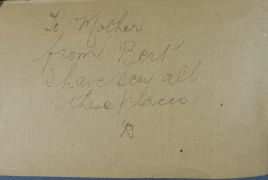 To Mother
from Bert
I have seen all
these places
B.